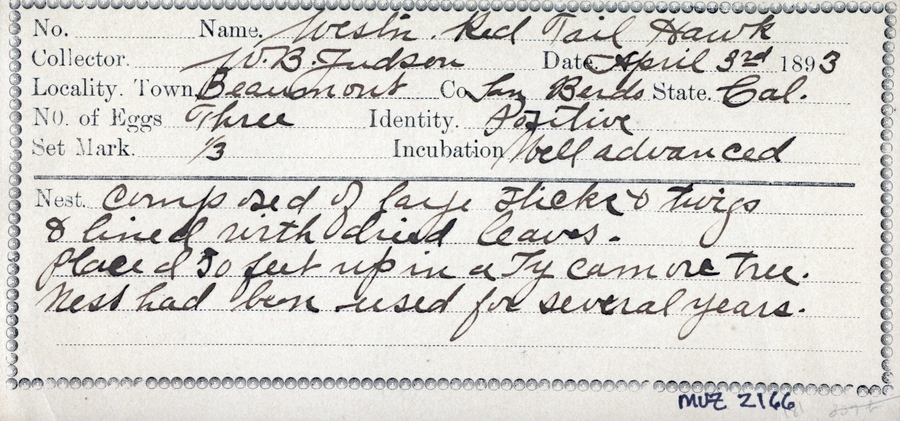 No. Name. Westn. Red Tail Hawk
Collector. W. B. Judson Date April 3rd 1893
Locality. Town. Beaumont Co. San Berdo State. Cal.
NO. of Eggs Three Identity. Positive
Set Mark. 1/3 Incubation Well advanced
Nest. Composed of large sticks & twigs
& lined with dried leaves.
placed 50 feet up in a Sycamore tree.
Nest had been used for several years.
MVZ 2166